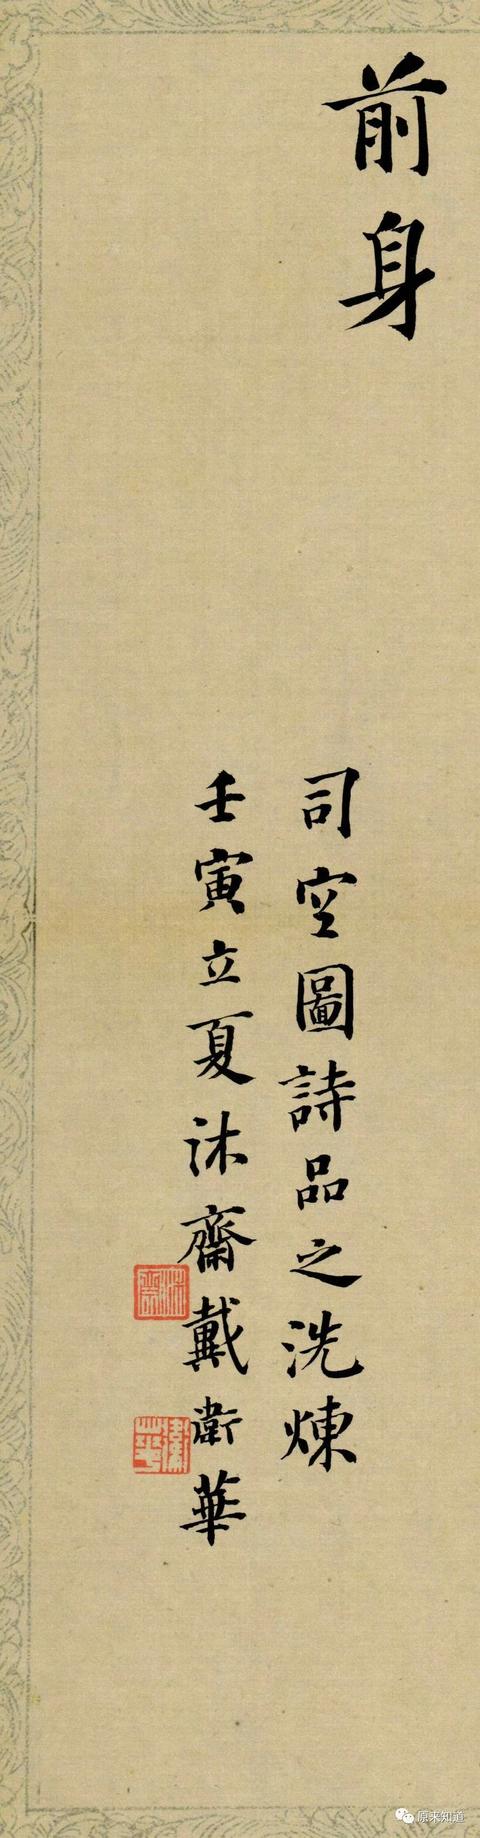 前身
司空圖詩品之洗煉
壬寅立夏沐齋戴衛華
沐齋
衛華
原来知道